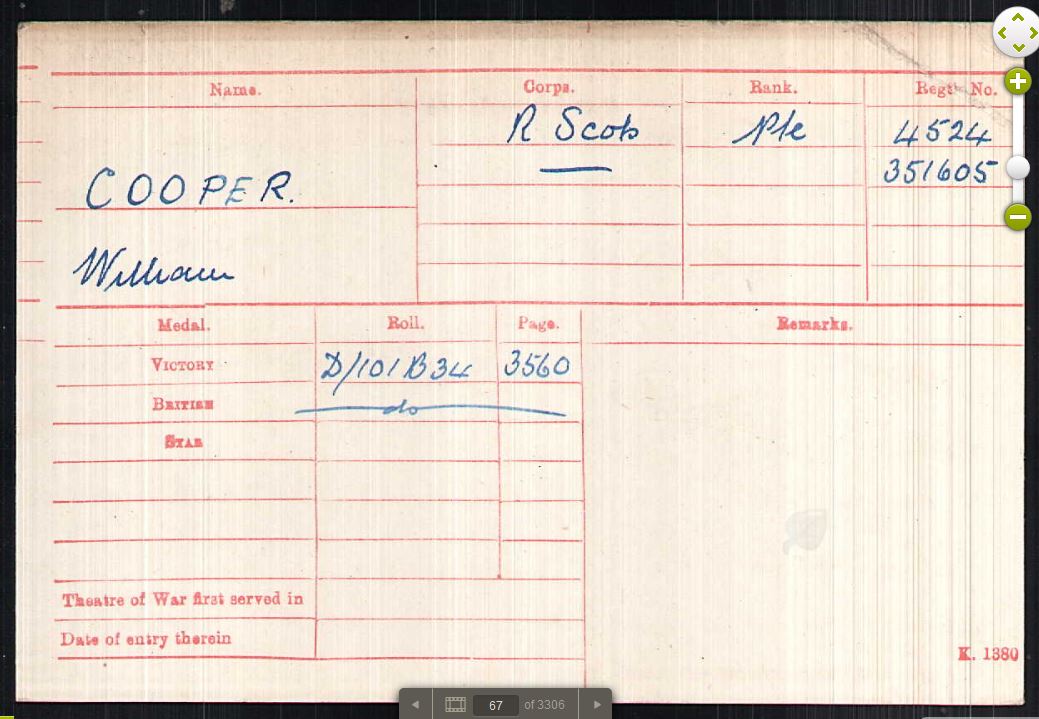 Name. Corps. Rank. Regtl No.
R Scots Pte 4524
351605
COOPER.
William
Medal. Roll. Page. Remarks.
VICTORY D/101 B34 3560
BRITISH do
STAR
Theatre of War first served in
Date of entry therein
K. 1380
67 of 3306